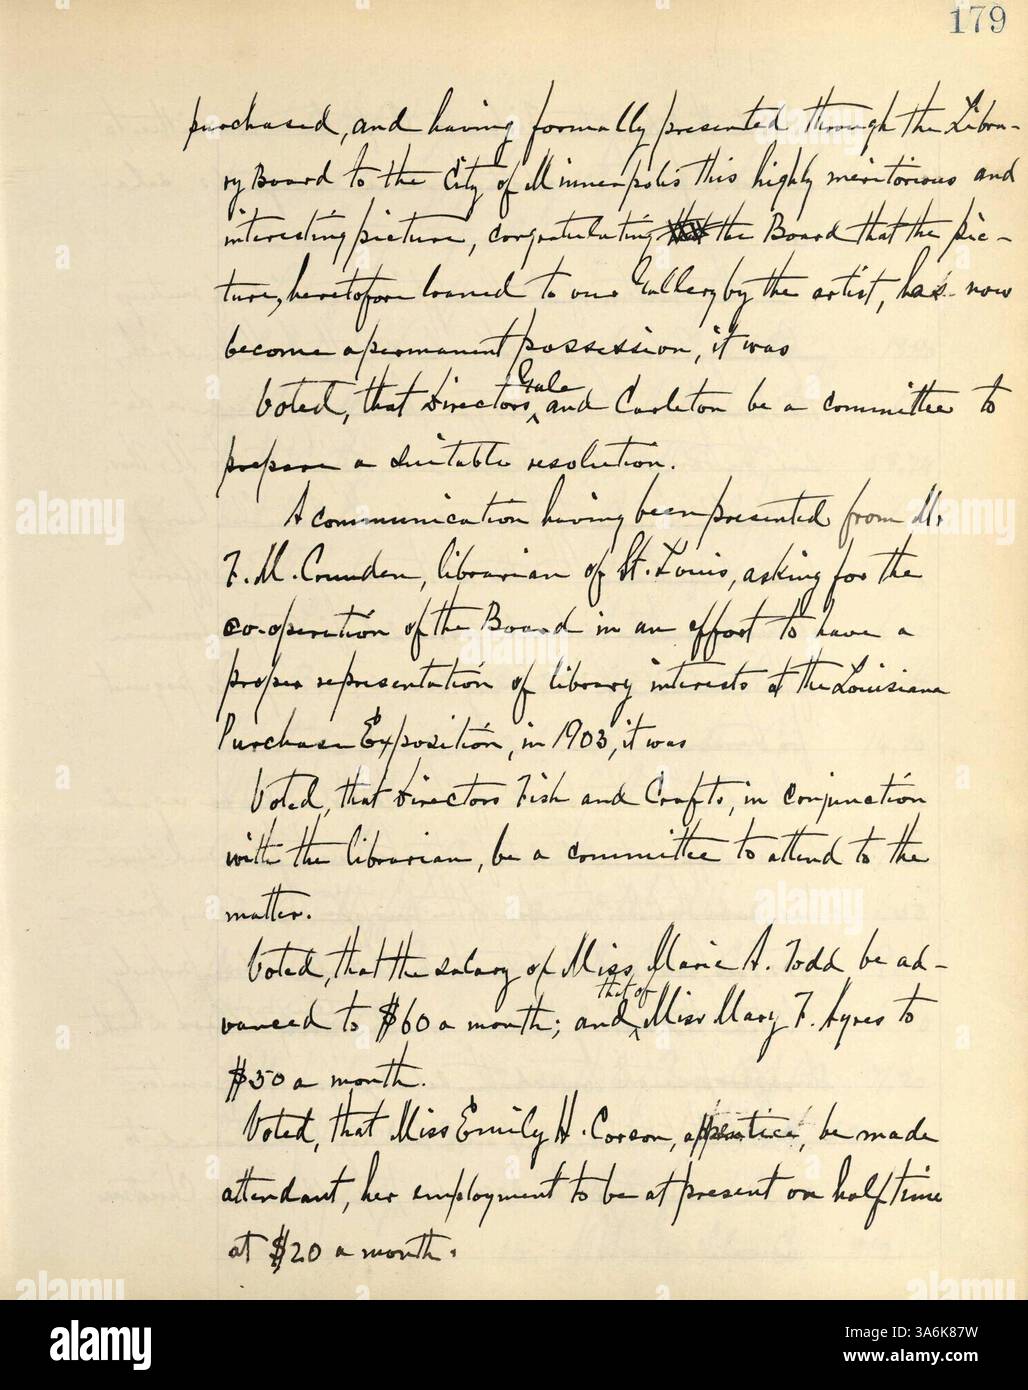 179
purchased, and having formally presented through the Libra-
ry Board to the City of Minneapolis this highly meritorious and
interesting picture, congratulating the Board that the pic-
ture, heretofore loaned to our Gallery by the artist, has now
become a permanent possession, it was
Voted, that Directors Gale and Carleton be a committee to
prepare a suitable resolution.
A communication having been presented from Mr.
F. M. Crunden, librarian of St. Louis, asking for the
co-operation of the Board in an effort to have a
proper representation of library interests at the Louisiana
Purchase Exposition, in 1903, it was
Voted, that Directors Fish and Crafts, in conjunction
with the librarian, be a committee to attend to the
matter.
Voted, that the salary of Miss Marie A. Todd be ad-
vanced to $60 a month; and that of Miss Mary F. Ayres to
$50 a month.
Voted, that Miss Emily H. Corson, apprentice, be made
attendant, her employment to be at present on half time
at $20 a month.
alamy
Image ID: 3A6K87W
www.alamy.com